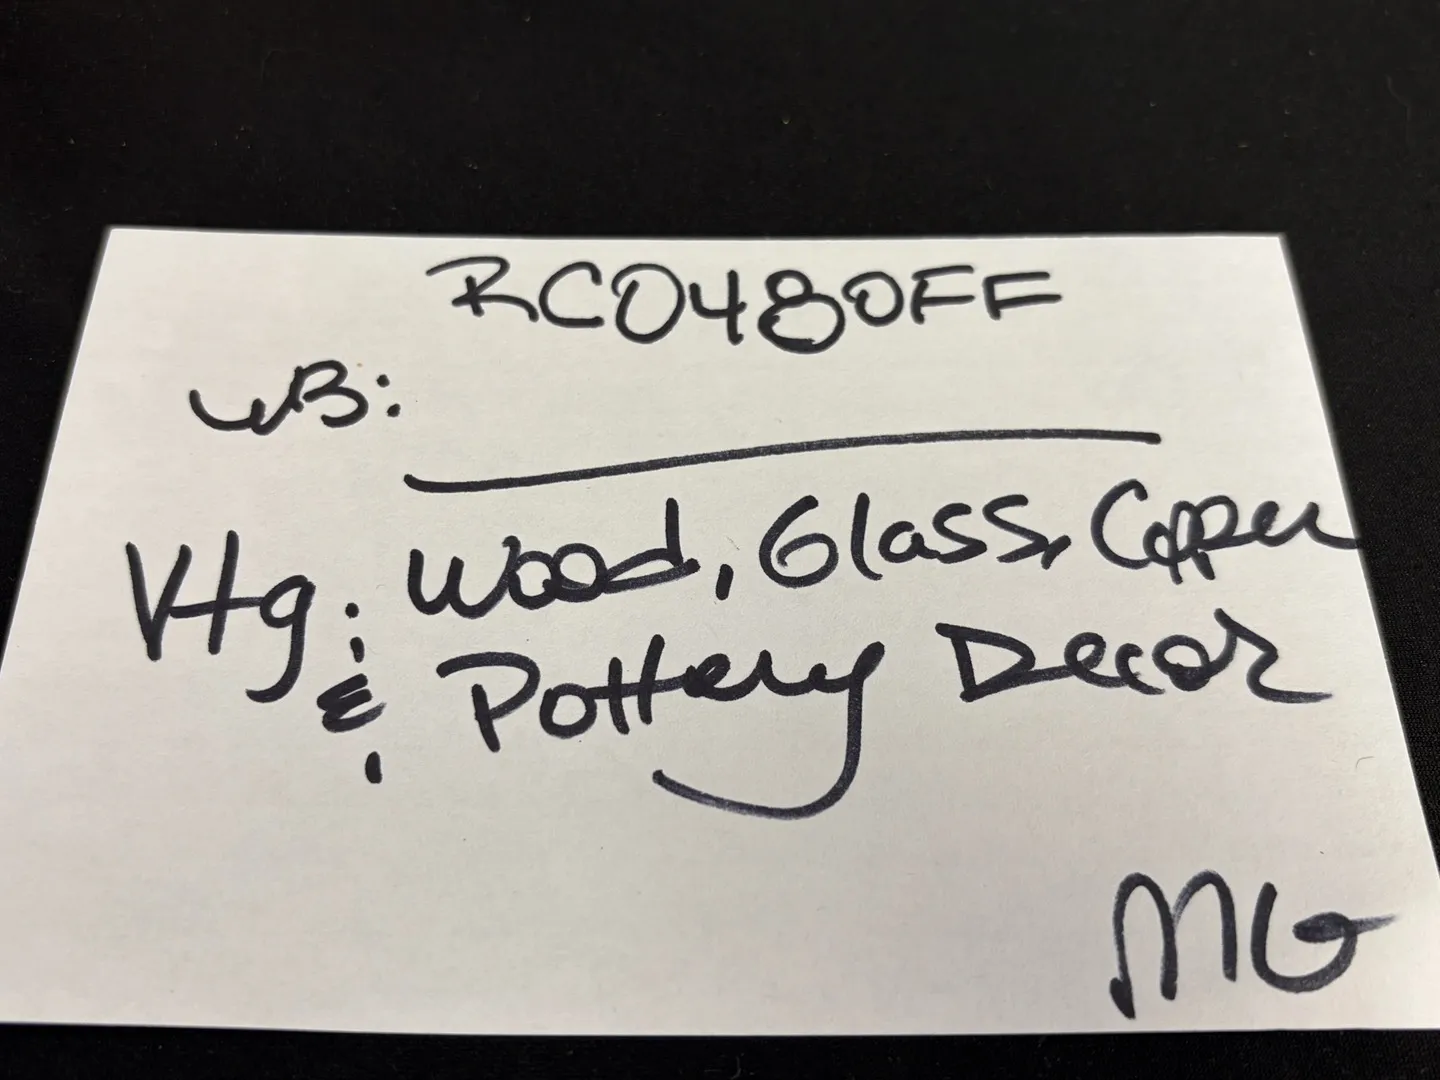 RC0480FF
WB:
Vtg: Wood, Glass, Copper
& Pottery Decor
MG